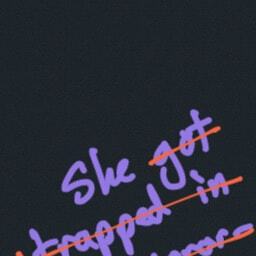 She got
trapped in